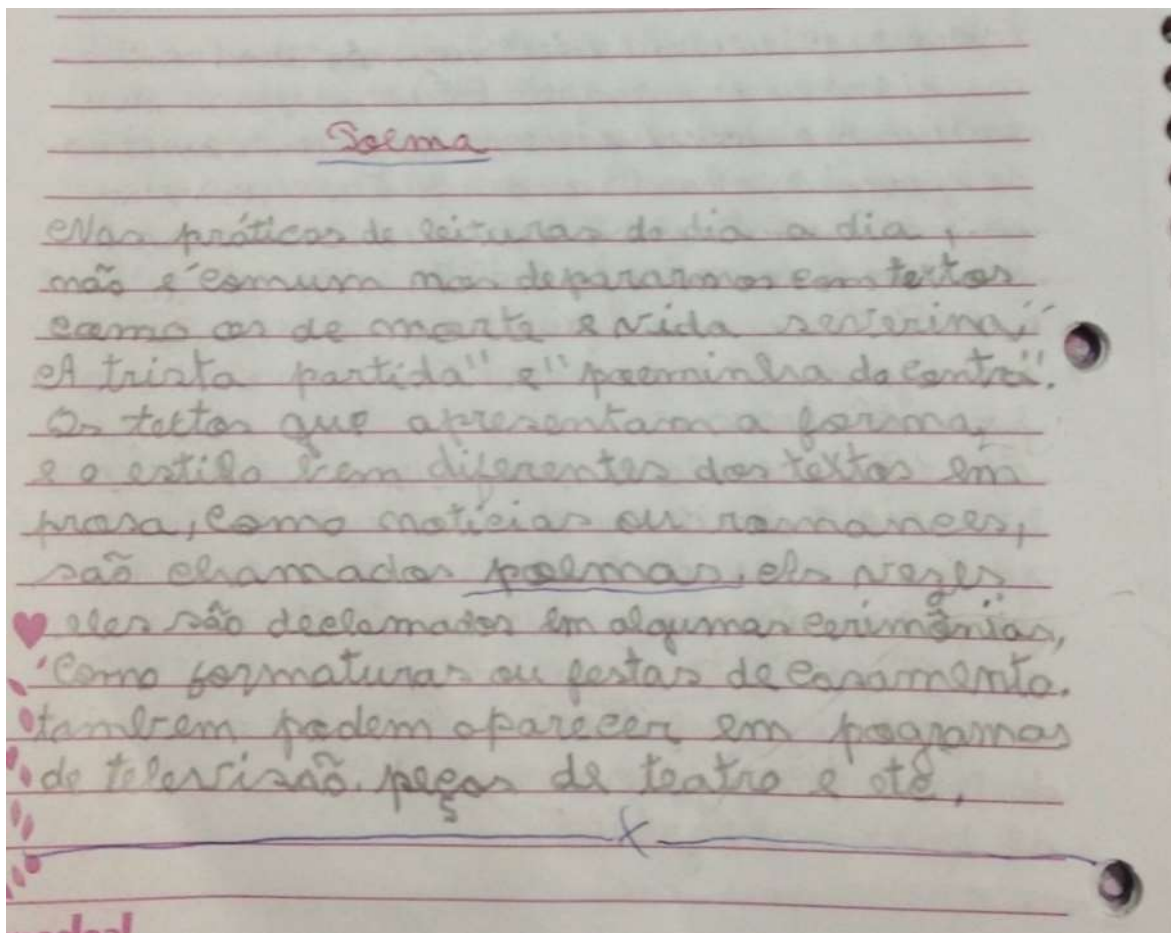 Poema
Nas práticas de leituras do dia a dia,
não é comum nos depararmos com textos
como os de morte e vida severina,"
A trista partida" e "poeminha do contra".
Os textos que apresentam a forma,
e o estilo bem diferentes dos textos em
prosa, como notícias ou romances,
são chamados poemas, às vezes
eles são declamados em algumas cerimônias,
como formaturas ou festas de casamento.
tambem podem aparecer em pogramas
de televisão. peças de teatro e etc,
x